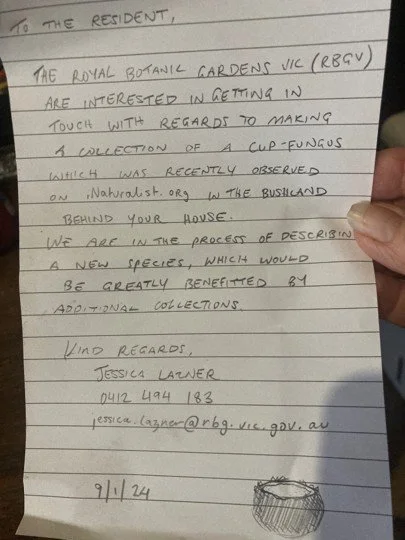 TO THE RESIDENT,
THE ROYAL BOTANIC GARDENS VIC (RBGV)
ARE INTERESTED IN GETTING IN
TOUCH WITH REGARDS TO MAKING
A COLLECTION OF A CUP-FUNGUS
WHICH WAS RECENTLY OBSERVED
ON iNaturalist.org IN THE BUSHLAND
BEHIND YOUR HOUSE.
WE ARE IN THE PROCESS OF DESCRIBIN
A NEW SPECIES, WHICH WOULD
BE GREATLY BENEFITTED BY
ADDITIONAL COLLECTIONS.
KIND REGARDS,
JESSICA LAZNER
0412 494 183
jessica.lazner@rbg.vic.gov.au
9/1/24